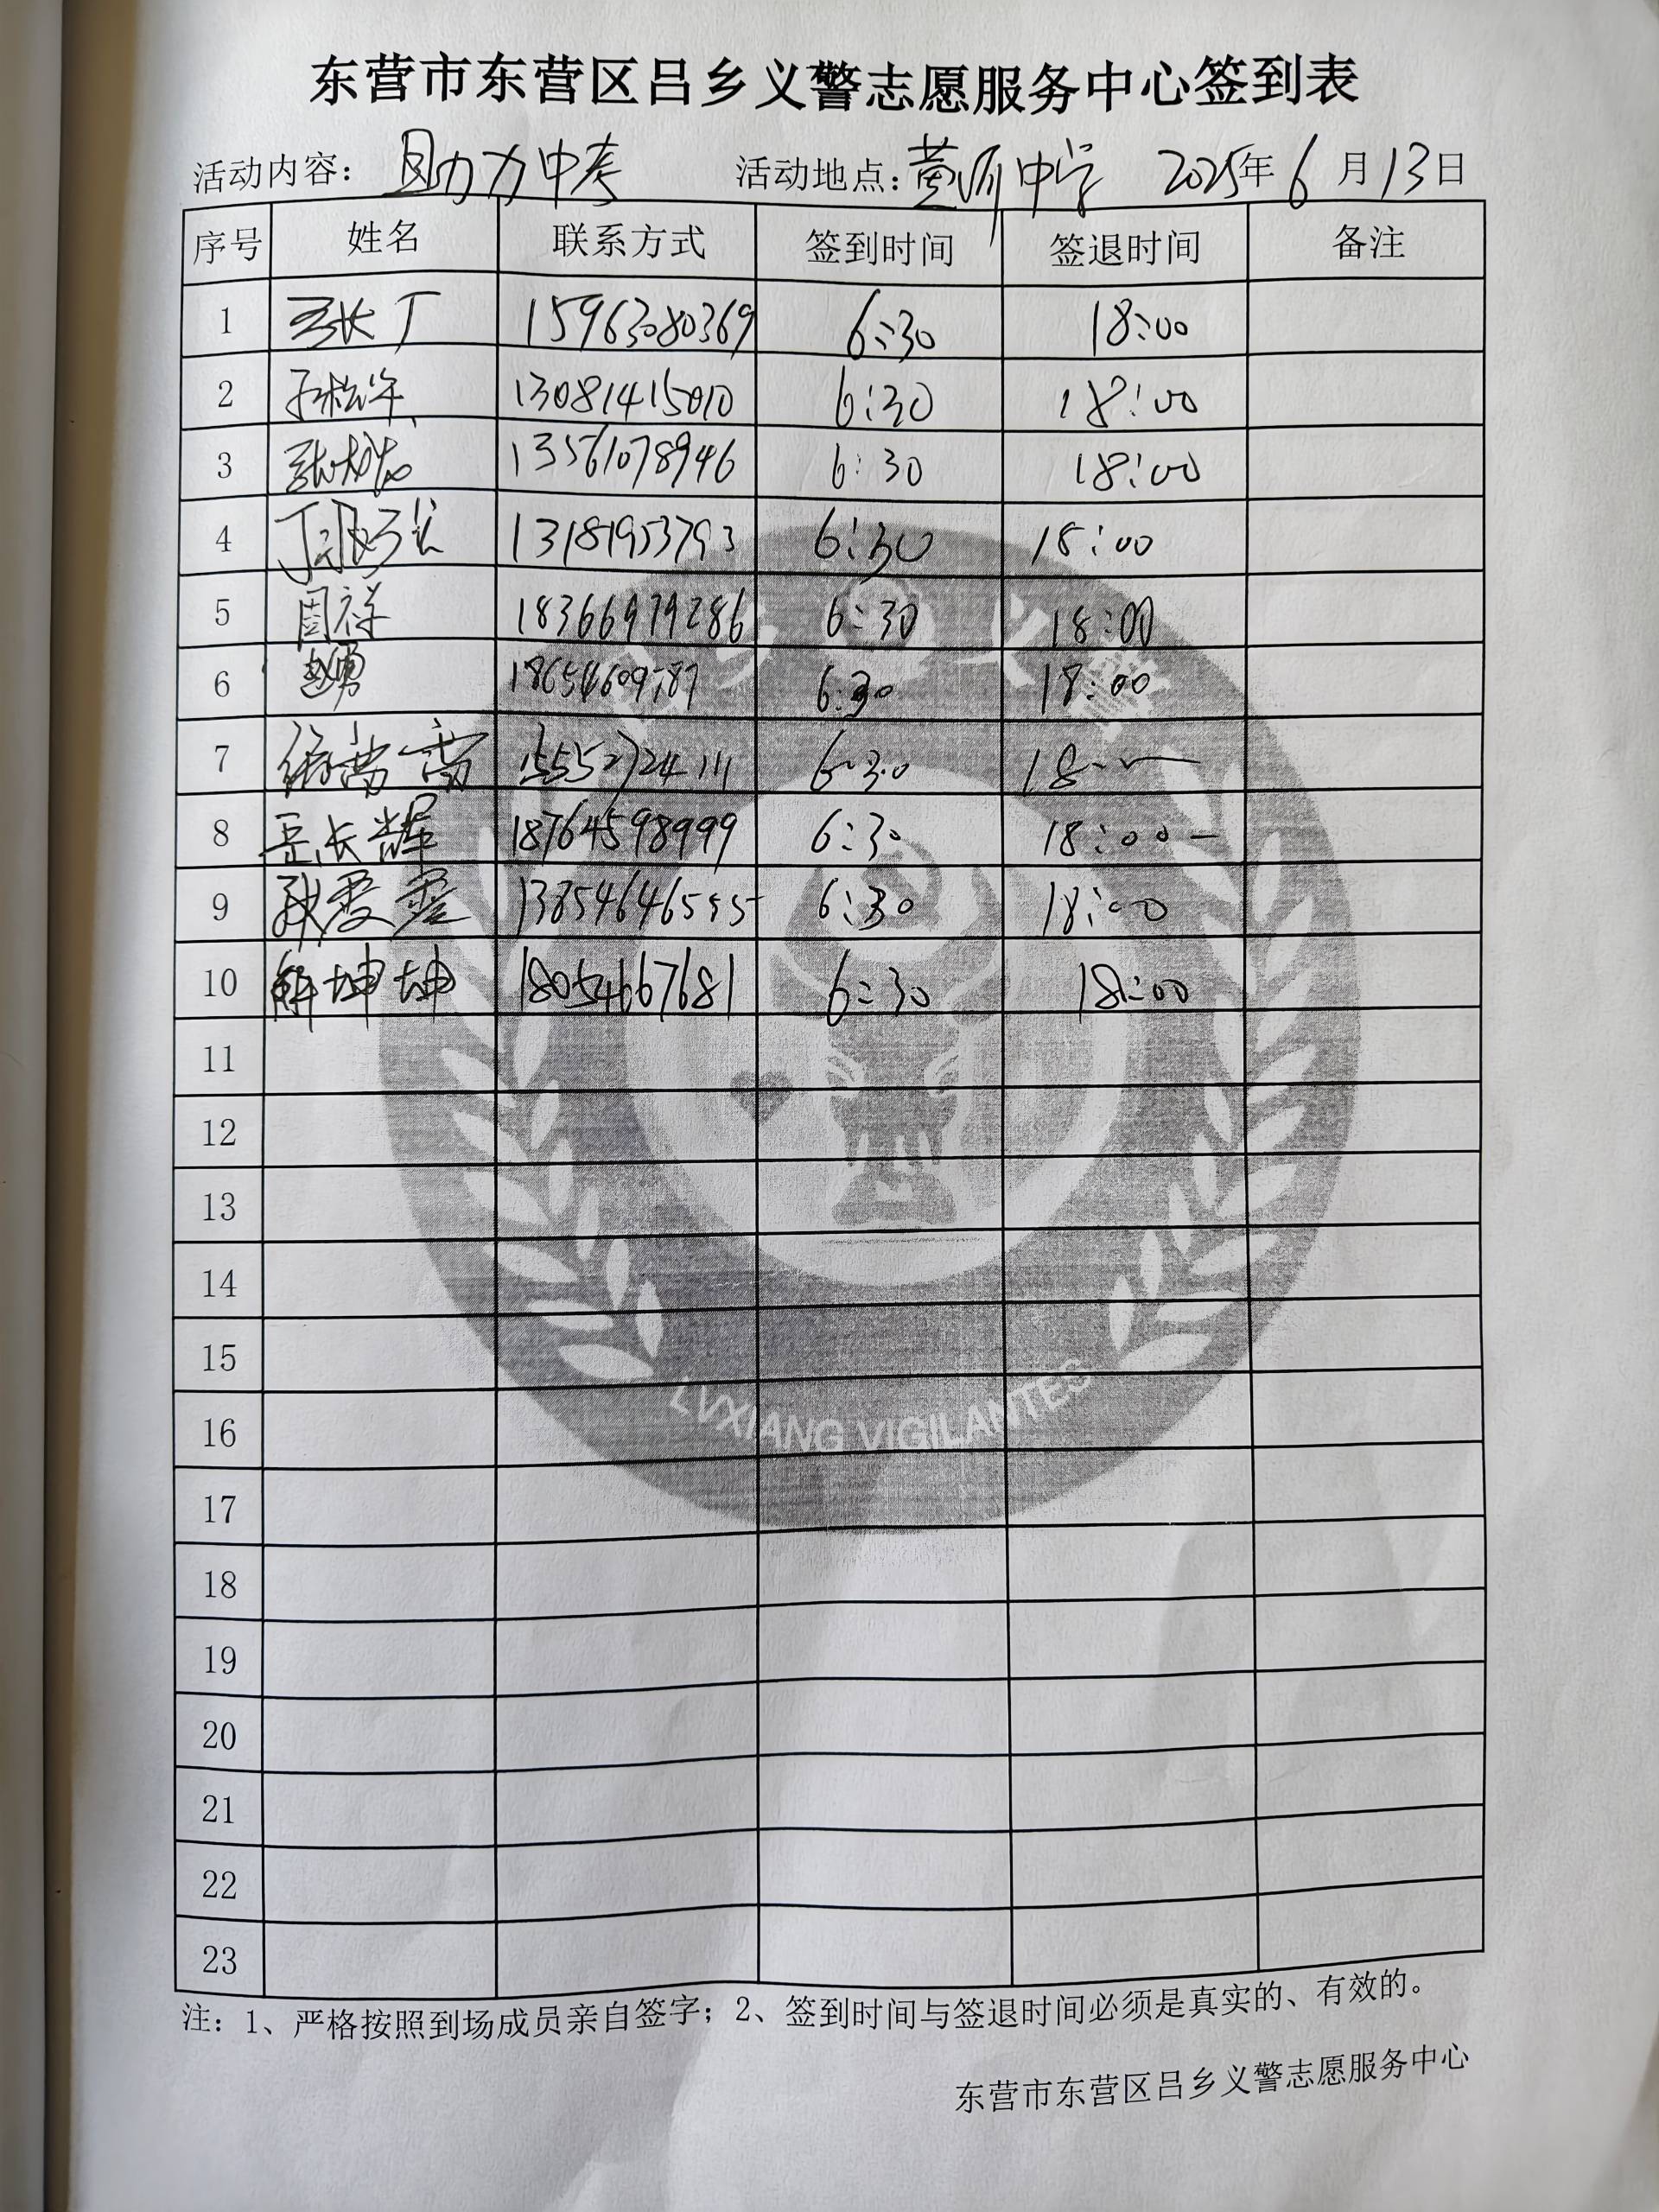 东营市东营区吕乡义警志愿服务中心签到表
活动内容: 助力中考 活动地点: 黄河中学 2025年6月13日
序号 姓名 联系方式 签到时间 签退时间 备注
1 张丁 15963080369 6:30 18:00
2 13081415010 6:30 18:00
3 13561078946 6:30 18:00
4 13181953793 6:30 18:00
5 周祥 18366979286 6:30 18:00
6 赵勇 6:30 18:00
7 15552724111 6:30 18
8 岳长辉 18764598999 6:30 18:00
9 13854646555 6:30 18:00
10 解坤坤 18054667681 6:30 18:00
11
12
13
14
15
16
17
18
19
20
21
22
23
LVXIANG VIGILANTES
注: 1、严格按照到场成员亲自签字; 2、签到时间与签退时间必须是真实的、有效的。
东营市东营区吕乡义警志愿服务中心